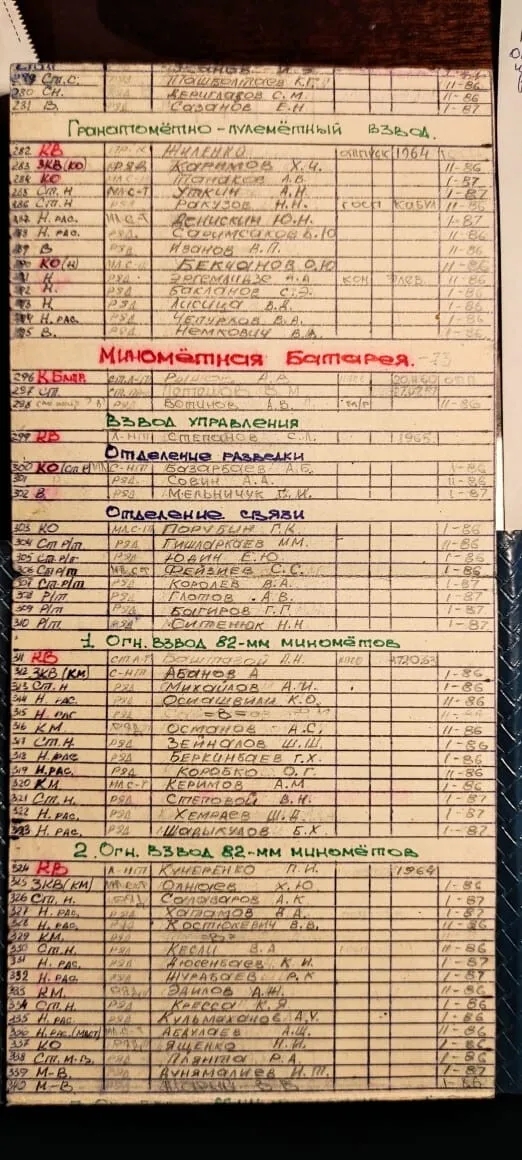 279 Ст.с. РЯД Ташболтаев К.Г. 11-86
280 СН. РЯД Дериглазов С.М. 11-86
281 В. РЯД Сазанов Е.Н 1-87
Гранатомётно-пулемётный взвод.
282 КВ Жиленко отпуск 1964
283 ЗКВ(КО) РЯД Каримов Х.Ч. 11-86
284 КО А.В. 1-87
285 Ст.Н МЛС-Т Уткин А.Н. 1-87
286 Ст.Н РЯД Ракузов Н.Н. госп Кабул 11-86
287 Н.рас. МЛС-Т Денискин Ю.Н. 1-87
288 Н.рас. РЯД Саримсаков Б.Ю 11-86
289 В РЯД Иванов В.П. 11-86
290 КО(Н) Бекчанов О.Ю 11-86
291 Н РЯД 1-86
292 Н. РЯД Бакланов С.Э. 1-86
293 Н РЯД Лисица В.А. 1-86
294 Н.рас. РЯД Чепурков В.А. 1-86
295 В. РЯД Немкович В. 1-86
Миномётная Батарея.
296 КБатр. А.Р.
297 Ст.
298 РЯД Вотинов А.В.
Взвод управления
299 КВ Л-НТ Степанов С.Л. 1965
Отделение разведки
300 КО С-НТ Базарбаев А.Б. 11-86
301 РЯД Совин А.А. 11-86
302 В. РЯД Мельничук 1-87
Отделение связи
303 КО МЛС-Т Порубин Г.К 1-86
304 Ст Р/т РЯД Гишларкаев М.М. 11-86
305 Ст Р/т РЯД Юдин Е.Ю. 1-86
306 Ст Р/т МЛ.СТ Фейзиев С.С. 1-86
307 Ст Р/т РЯД Королев В.А. 1-87
308 Р/т РЯД Глотов А.В. 1-87
309 Р/т РЯД Багиров Г.Г 1-87
310 Р/т РЯД Ситенюк Н.Н 1-87
1. Огн. взвод 82-мм миномётов
311 КВ Баштовой Л.Н.
312 ЗКВ(КМ) С-НТ Абанов А 1-86
313 Ст.Н РЯД Михайлов А.И. 1-86
314 Н.рас. РЯД Осиашвили К.О. 11-86
315 Н.рас РЯД =В=
316 КМ. РЯД Останов А.С. 11-86
317 Ст.Н. РЯД Зейналов Ш.Ш. 1-86
318 Н.рас РЯД Беркинбаев Г.Х. 1-86
319 Н.рас. РЯД Коробко О.Г 11-86
320 КМ. МЛС-Т Керимов А.М 1-86
321 Ст.н. РЯД Степовой В.Н. 1-87
322 Н.рас. РЯД Хемраев Ш.Д. 1-87
323 Н.рас. РЯД Шадыкулов Б.Х. 1-87
2. Огн. взвод 82-мм миномётов
324 КВ Л-НТ Кучеренко П.И. 1964
325 ЗКВ(КМ) Х.Ю 1-86
326 Ст.Н. Салаваров А.К. 1-87
327 Н.рас. РЯД Хатамов 1-87
328 Н.рас. РЯД Костюкевич В.В. 11-86
329 КМ. РЯД =В=
330 Ст.Н. РЯД Кесли В.А 11-86
331 Н.рас. РЯД Дюсенбаев К.И. 1-87
332 Н.рас. РЯД Журабаев Р.К 1-87
333 КМ. РЯД Эдилов А.Ж. 11-86
334 Ст.Н. РЯД Кресса К.Я 1-86
335 Н.рас. РЯД Кульмаханов А.У. 1-86
336 Н.рас.(маст) Абдулаев А.Щ. 11-86
337 КО РЯД Ященко Н.И. 1-86
338 Ст.М-В. РЯД Плянта Р.А. 1-86
339 М-В. РЯД Дунямалиев И.Т. 1-87
340 М-В РЯД В.В 1-86